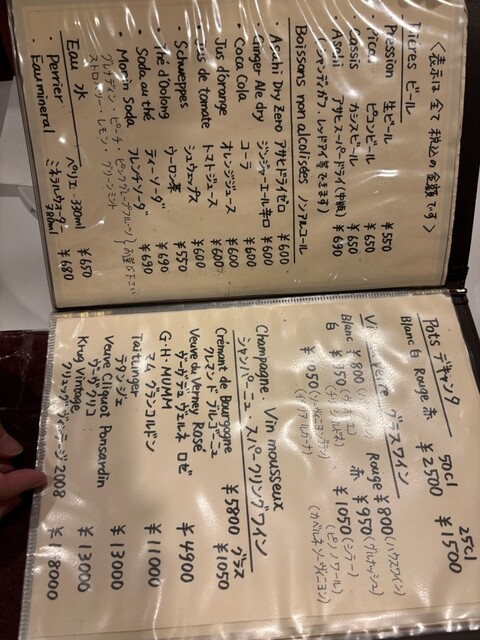 〈表示は全て税込の金額です〉
Bières ビール
・Pression 生ビール ¥550
・Picon ピコンビール ¥650
・Cassis カシスビール ¥650
・Asahi アサヒスーパードライ(中瓶) ¥690
(シャンディガフ、レッドアイ等できます)
Boissons non alcolisées ノンアルコール
・Asahi Dry Zero アサヒドライゼロ ¥600
・Ginger Ale dry ジンジャーエール辛口 ¥600
・Coca Cola コーラ ¥600
・Jus d'orange オレンジジュース ¥600
・Jus de tomate トマトジュース ¥600
・Schweppes シュウェップス ¥550
・Thé d'Oolong ウーロン茶
・Soda au thé ティーソーダ ¥690
・Monin Soda フレンチソーダ ¥690
Eau 水
・Perrier ペリエ 330ml ¥650
・Eau mineral ミネラルウォーター 780ml ¥680
Pots デキャンタ 50cl 25cl
Blanc 白 Rouge 赤 ¥2500 ¥1500
グラスワイン
Blanc 白 ¥800
Rouge 赤 ¥800 (ハウスワイン)
¥950 (シャルドネ)
¥950 (グルナッシュ)
¥1050 (シラー)
(ピノノワール)
(カベルネソーヴィニヨン)
Champagne・Vin mousseux
シャンパーニュ・スパークリングワイン
Crémant de Bourgogne ¥5800 グラス ¥1050
クレマン ド ブルゴーニュ
Veuve du Verney Rosé ¥4900
ヴーヴ デュ ヴェルネ ロゼ
G・H・MUMM ¥11000
マム グランコルドン
Taittinger ¥13000
テタンジェ
Veuve Cliquot Ponsardin ¥13000
ヴーヴ クリコ
Krug Vintage ¥48000
クリュッグ ヴィンテージ 2008